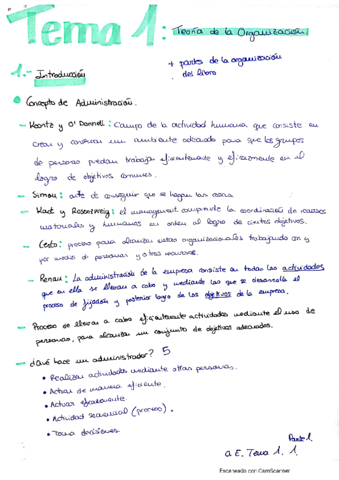 Tema 1: Teoría de la Organización.
+ partes de la organización
del libro
1.- Introducción
Concepto de Administración.
- Koontz y O'Donnell: Campo de la actividad humana que consiste en
crear y conservar un ambiente adecuado para que los grupos
de personas puedan trabajar eficientemente y eficazmente en el
logro de objetivos comunes.
- Simon: arte de conseguir que se hagan las cosas.
- Kast y Rosenzweig: el management comprende la coordinación de recursos
materiales y humanos en orden al logro de ciertos objetivos.
- Certo: proceso para alcanzar metas organizacionales trabajando con y
por medio de personas y otros recursos.
- Renau: La administración de la empresa consiste en todas las actividades
que en ella se llevan a cabo y mediante las que se desarrolla el
proceso de fijación y posterior logro de los objetivos de la empresa.
- Proceso de llevar a cabo eficientemente actividades mediante el uso de
personas, para alcanzar un conjunto de objetivos adecuados.
- ¿Qué hace un administrador? 5
• Realizar actividades mediante otras personas.
• Actuar de manera eficiente.
• Actuar eficazmente.
• Actividad secuencial (proceso).
• Toma decisiones.
Parte 1.
a.E. Tema 1. 1
Escaneado con CamScanner